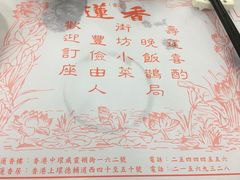 蓮香
壽筵喜酌
晚飯鶴局
街坊小菜
豐儉由人
歡迎訂座
蓮香樓：香港中環威靈頓街一六二號 電話：二五四四四五五六
蓮香居：香港上環德輔道西四十至五十號 電話：二一五六九三二八